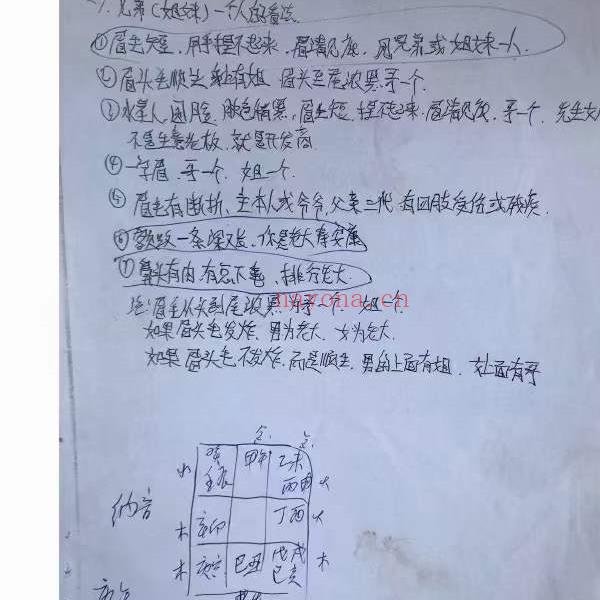 一、兄弟(姐妹)一个人的看法
①眉毛短,用手捏不起来,眉清见底,见兄弟或姐妹一人
②眉头毛顺生 上有姐 眉头至尾浓黑 哥一个.
③水星人,圆脸,肤色偏黑,眉毛短,捏不起来,眉清见底,哥一个,先生女
不是生意老板,就是开发商
④一字眉,哥一个,姐一个.
⑤眉毛有断折,主本人或爷爷,父亲三代有四肢受伤或残疾.
⑥额头一条深又长,你是老大寿安康
⑦鼻头有肉有忌下垂,排行老大
注:眉毛从头到尾浓黑,哥一个,姐一个.
如果眉头毛发炸,男为老大,女为老大.
如果眉头毛不发炸,而是顺生,男的上面有姐,女上面有哥
mazona.cn
金 金
水 壬辰 甲午 乙未
丙申 火
纳音 木 辛卯 丁酉 火
木 庚寅 己丑 戊戌 木
己亥